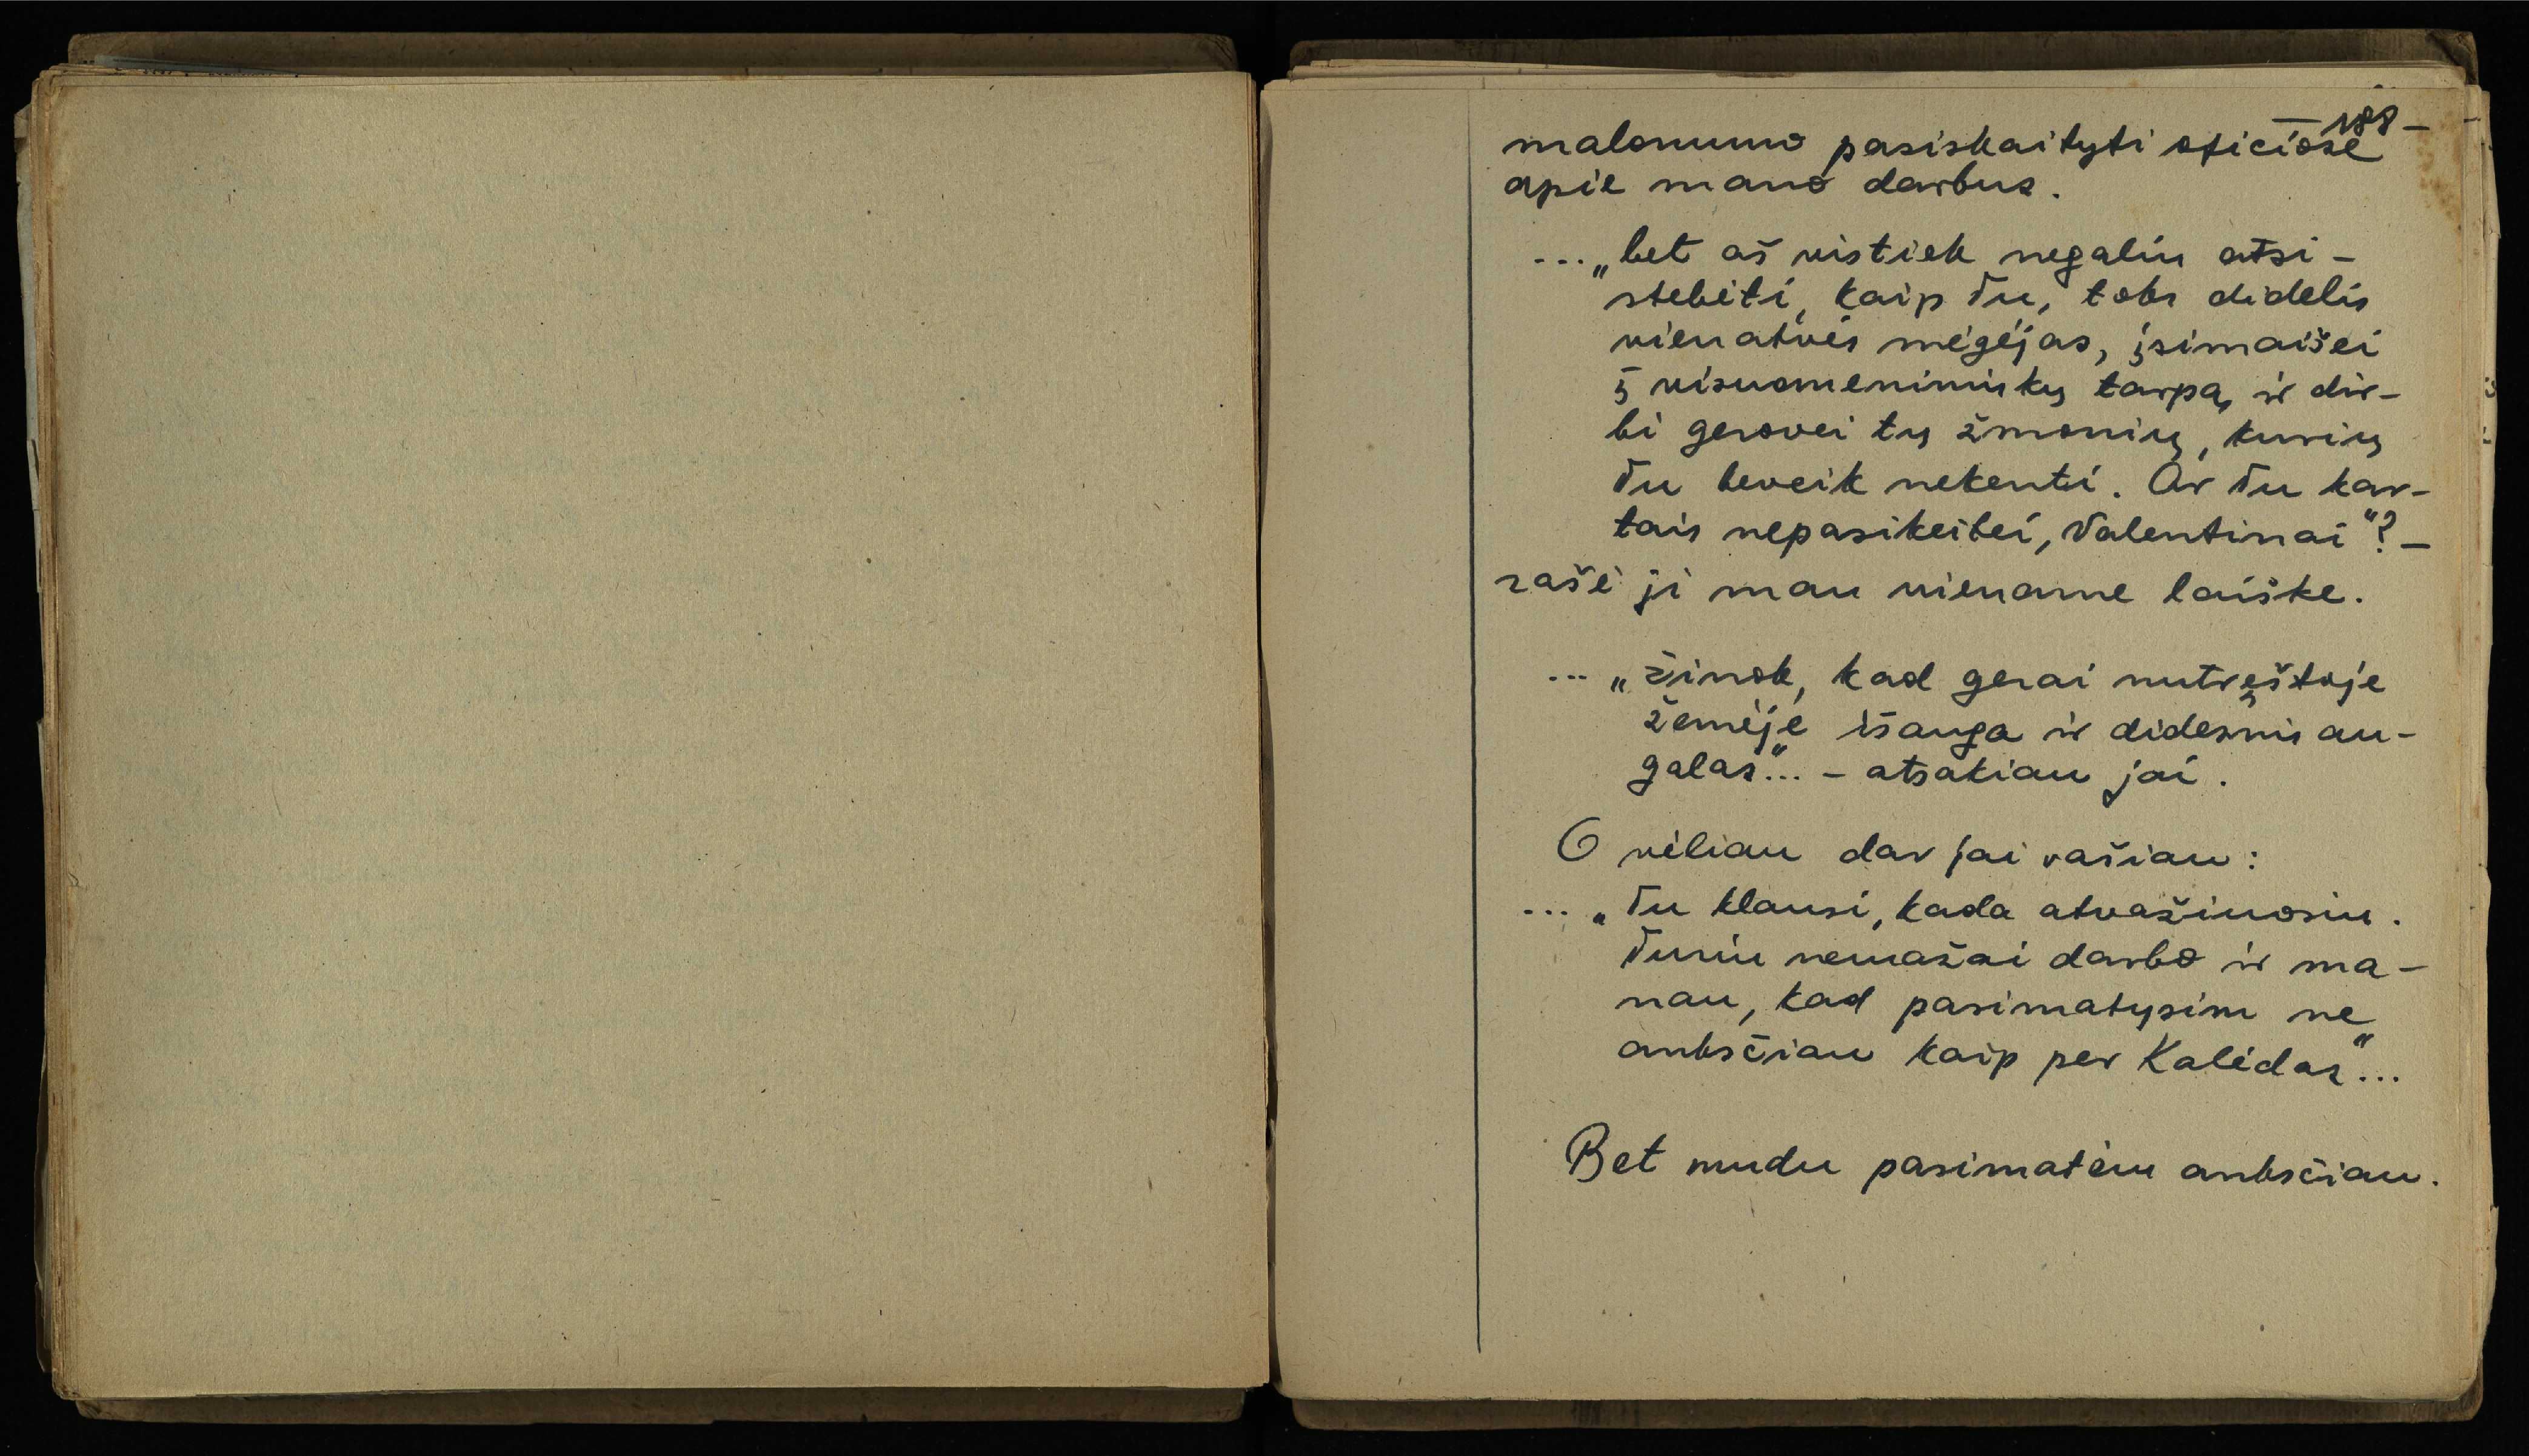 — 188 —
malonumo pasiskaityti oficiose
apie mano darbus.
... „bet aš vistiek negaliu atsi-
stebėti, kaip Tu, toks didelis
vienatvės mėgėjas, įsimaišei
į visuomenininkų tarpą ir dir-
bi gerovei tų žmonių, kurių
Tu beveik nekenti. Ar Tu kar-
tais nepasikeitei, Valentinai"? —
rašė ji man viename laiške.
... „žinok, kad gerai nutręštoje
žemėje išauga ir didesnis au-
galas"... – atsakiau jai.
O vėliau dar jai rašiau:
... „Tu klausi, kada atvažiuosiu.
Turiu nemažai darbo ir ma-
nau, kad pasimatysim ne
anksčiau kaip per Kalėdas"...
Bet mudu pasimatėm anksčiau.